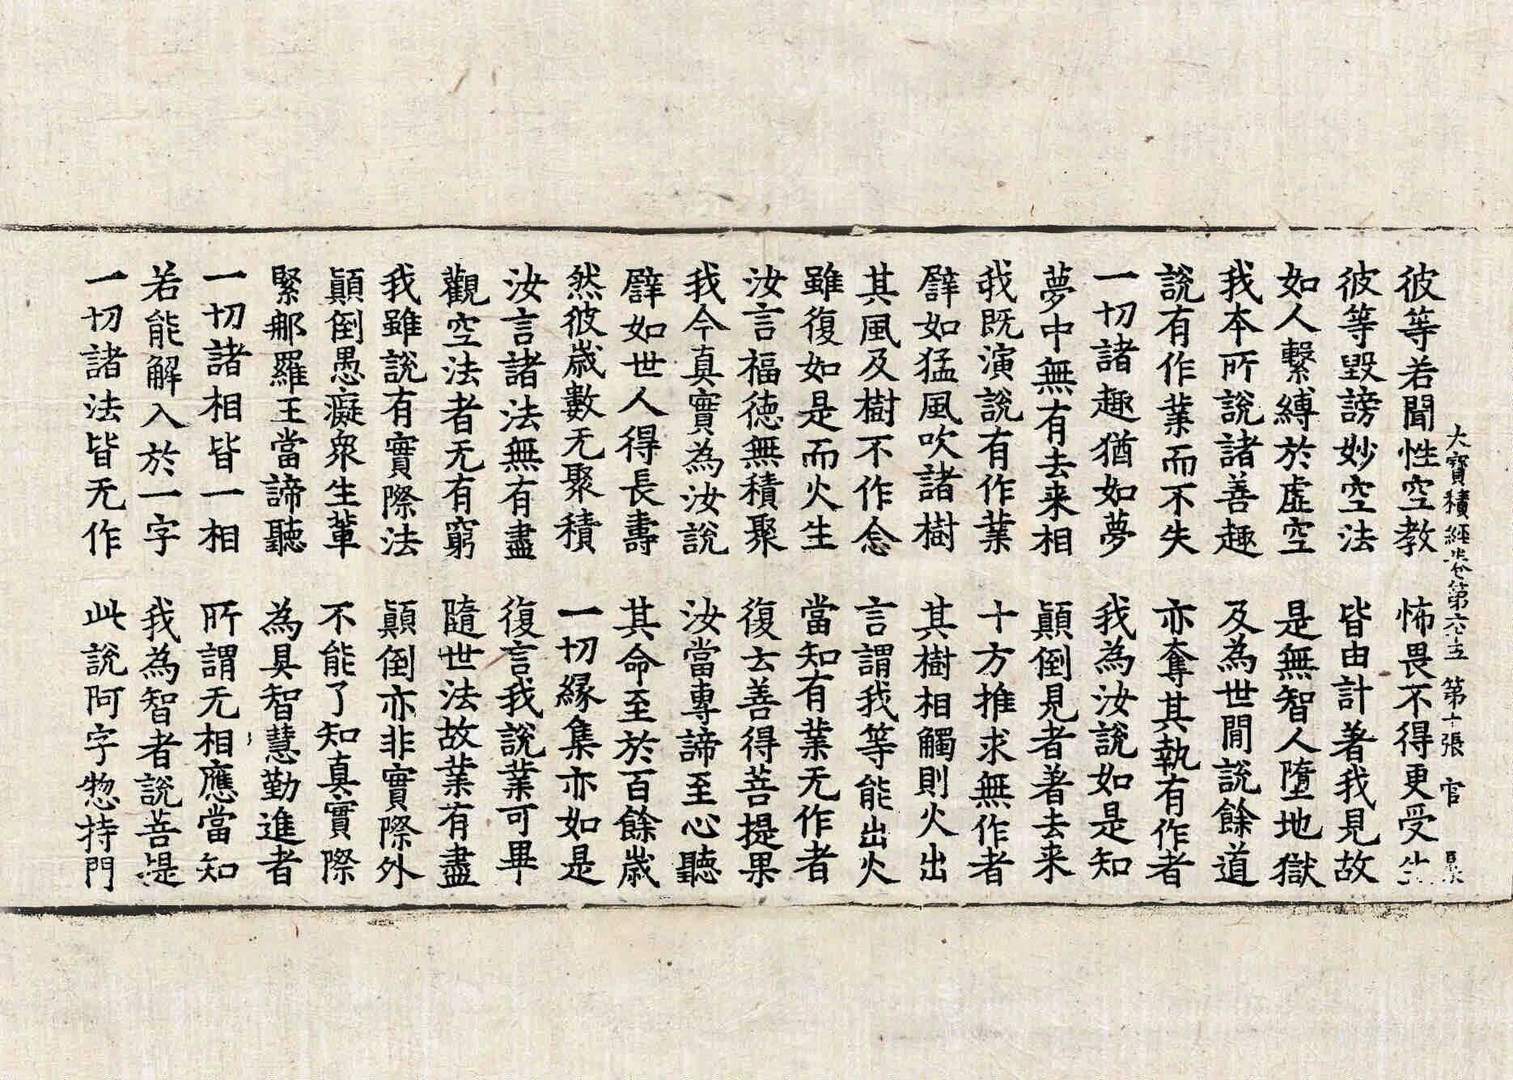 大寶積經卷第六十五 第十張 官
彼等若聞性空教 怖畏不得更受生
彼等毀謗妙空法 皆由計著我見故
如人繫縛於虛空 是無智人墮地獄
我本所說諸善趣 及為世間說餘道
說有作業而不失 亦奪其執有作者
一切諸趣猶如夢 我為汝說如是知
夢中無有去来相 顛倒見者著去来
我既演說有作業 十方推求無作者
譬如猛風吹諸樹 其樹相觸則火出
其風及樹不作念 言謂我等能出火
雖復如是而火生 當知有業无作者
汝言福徳無積聚 復云善得菩提果
我今真實為汝說 汝當專諦至心聽
譬如世人得長壽 其命至於百餘歲
然彼歲數无聚積 一切緣集亦如是
汝言諸法無有盡 復言我說業可畢
觀空法者无有窮 隨世法故業有盡
我雖說有實際法 顛倒亦非實際外
顛倒愚癡衆生輩 不能了知真實際
緊那羅王當諦聽 為具智慧勤進者
一切諸相皆一相 所謂无相應當知
若能解入於一字 我為智者說菩提
一切諸法皆无作 此說阿字惣持門